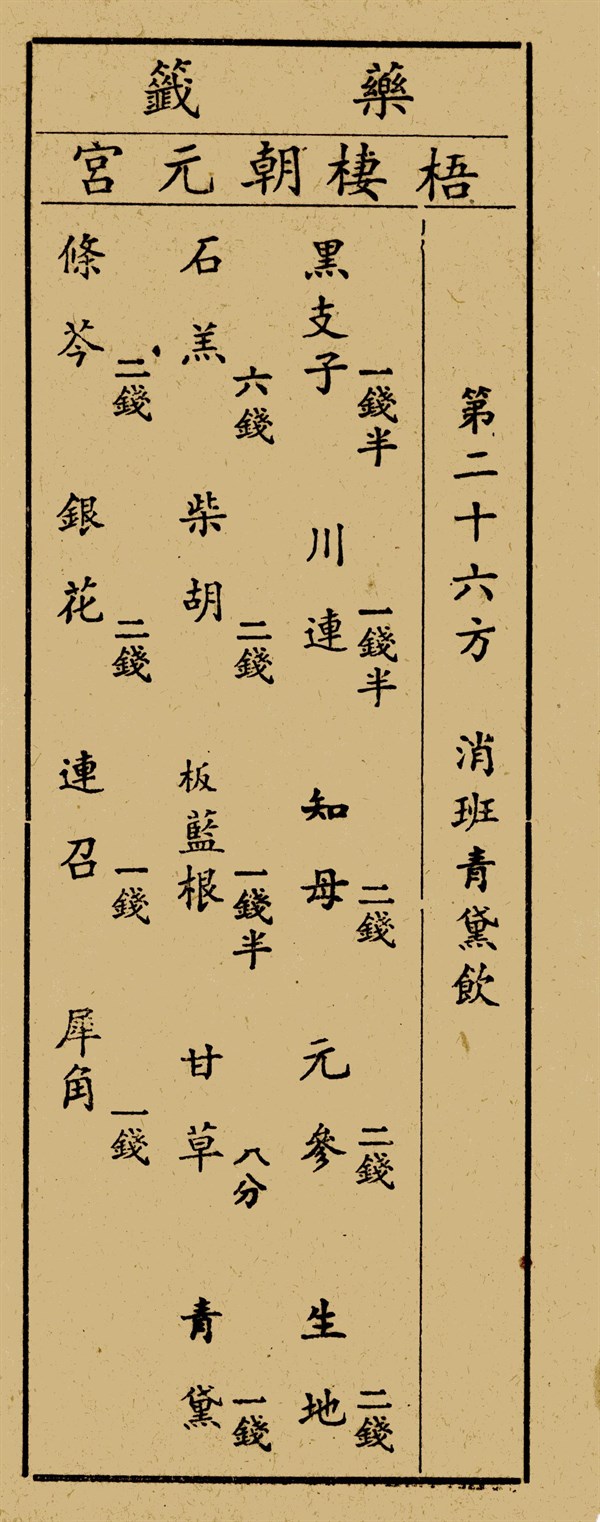 藥籤
梧棲朝元宮
第二十六方 消班青黛飲
黑支子一錢半 川連一錢半 知母二錢 元參二錢 生地二錢
石羔六錢 柴胡二錢 板藍根一錢半 甘草八分 青黛一錢
條芩二錢 銀花二錢 連召一錢 犀角一錢